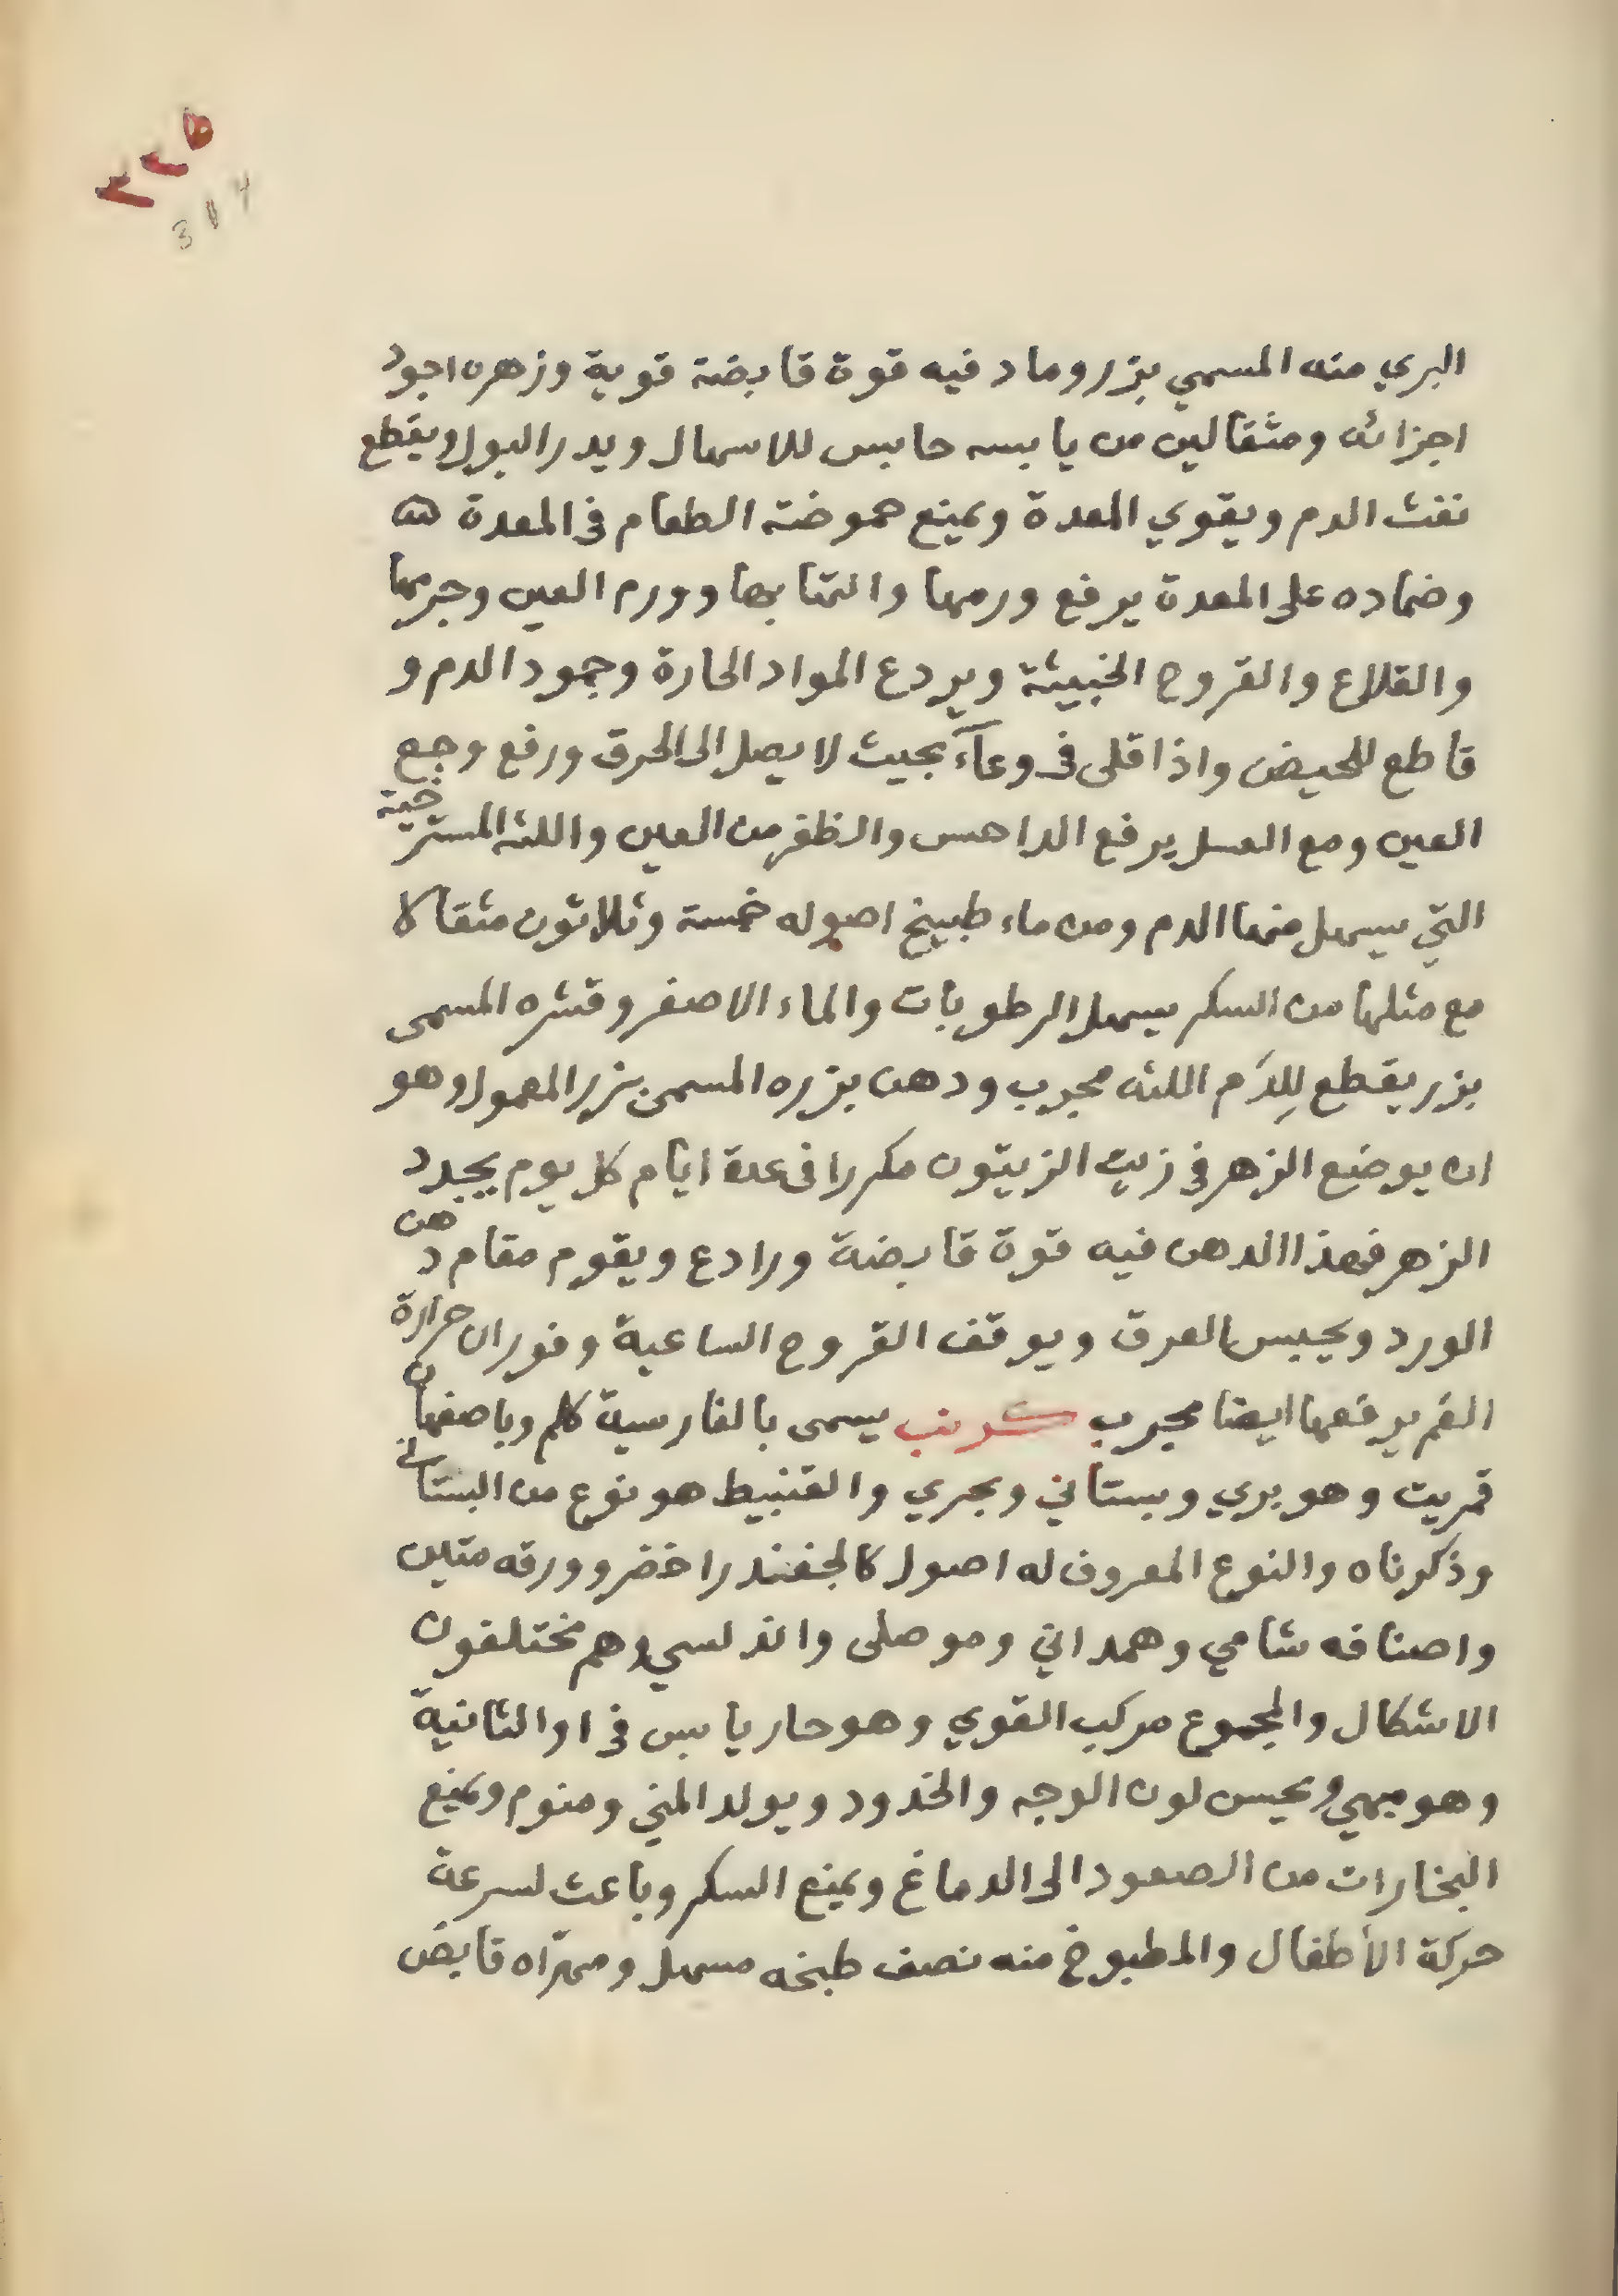 ٣٢٥
304
البري منه المسمي بزر وماد فيه قوة قابضة قوية وزهره اجود
اجزائه ومثقالين من يابسه حابس للاسهال ويدر البول ويقطع
نفث الدم ويقوي المعدة ويمنع حموضة الطعام في المعدة
وضماده على المعدة يرفع ورمها والتهابها وورم العين وجربها
والقلاع والقروح الخبيثة ويردع المواد الحارة وجمود الدم و
قاطع للحيض واذا قلى في وعآء بحيث لا يصل الى الحرق ورفع وجع
العين ومع العسل يرفع الداحس والظفر من العين واللثه المسترخية
التي يسهل منها الدم ومن ماء طبيخ اصوله خمسة وثلاثون مثقالا
مع مثلها من السكر يسهل الرطوبات والماء الاصفر وقشره المسمى
بزر يقطع لِلدَم اللثه مجرب ودهن بزره المسمى بزر المعمول وهو
ان يوضع الزهر في زيت الزيتون مكررا في عدة ايام كل يوم يجدد
الزهر فهذا الدهن فيه قوة قابضة ورادع ويقوم مقام دهن
الورد ويحبس العرق ويوقف القروح الساعية وفوران حرارة
الفم يرفعها ايضا مجرب كرنب يسمى بالفارسية كلم وباصفهان
قمريت وهو بري وبستاني وبحري والقنبيط هو نوع من البستاني
وذكرناه والنوع المعروف له اصول كالجغندر اخضر وورقه متين
واصنافه شامي وهمداني وموصلى واندلسي وهم مختلفون
الاشكال والمجموع مركب القوي وهو حار يابس في او الثانية
وهو مبهي ويحسن لون الوجه والخدود ويولد المني ومنوم ويمنع
البخارات من الصعود الى الدماغ ويمنع السكر وباعث لسرعة
حركة الأطفال والمطبوخ منه نصف طبخه مسهل ومهرّاه قابض